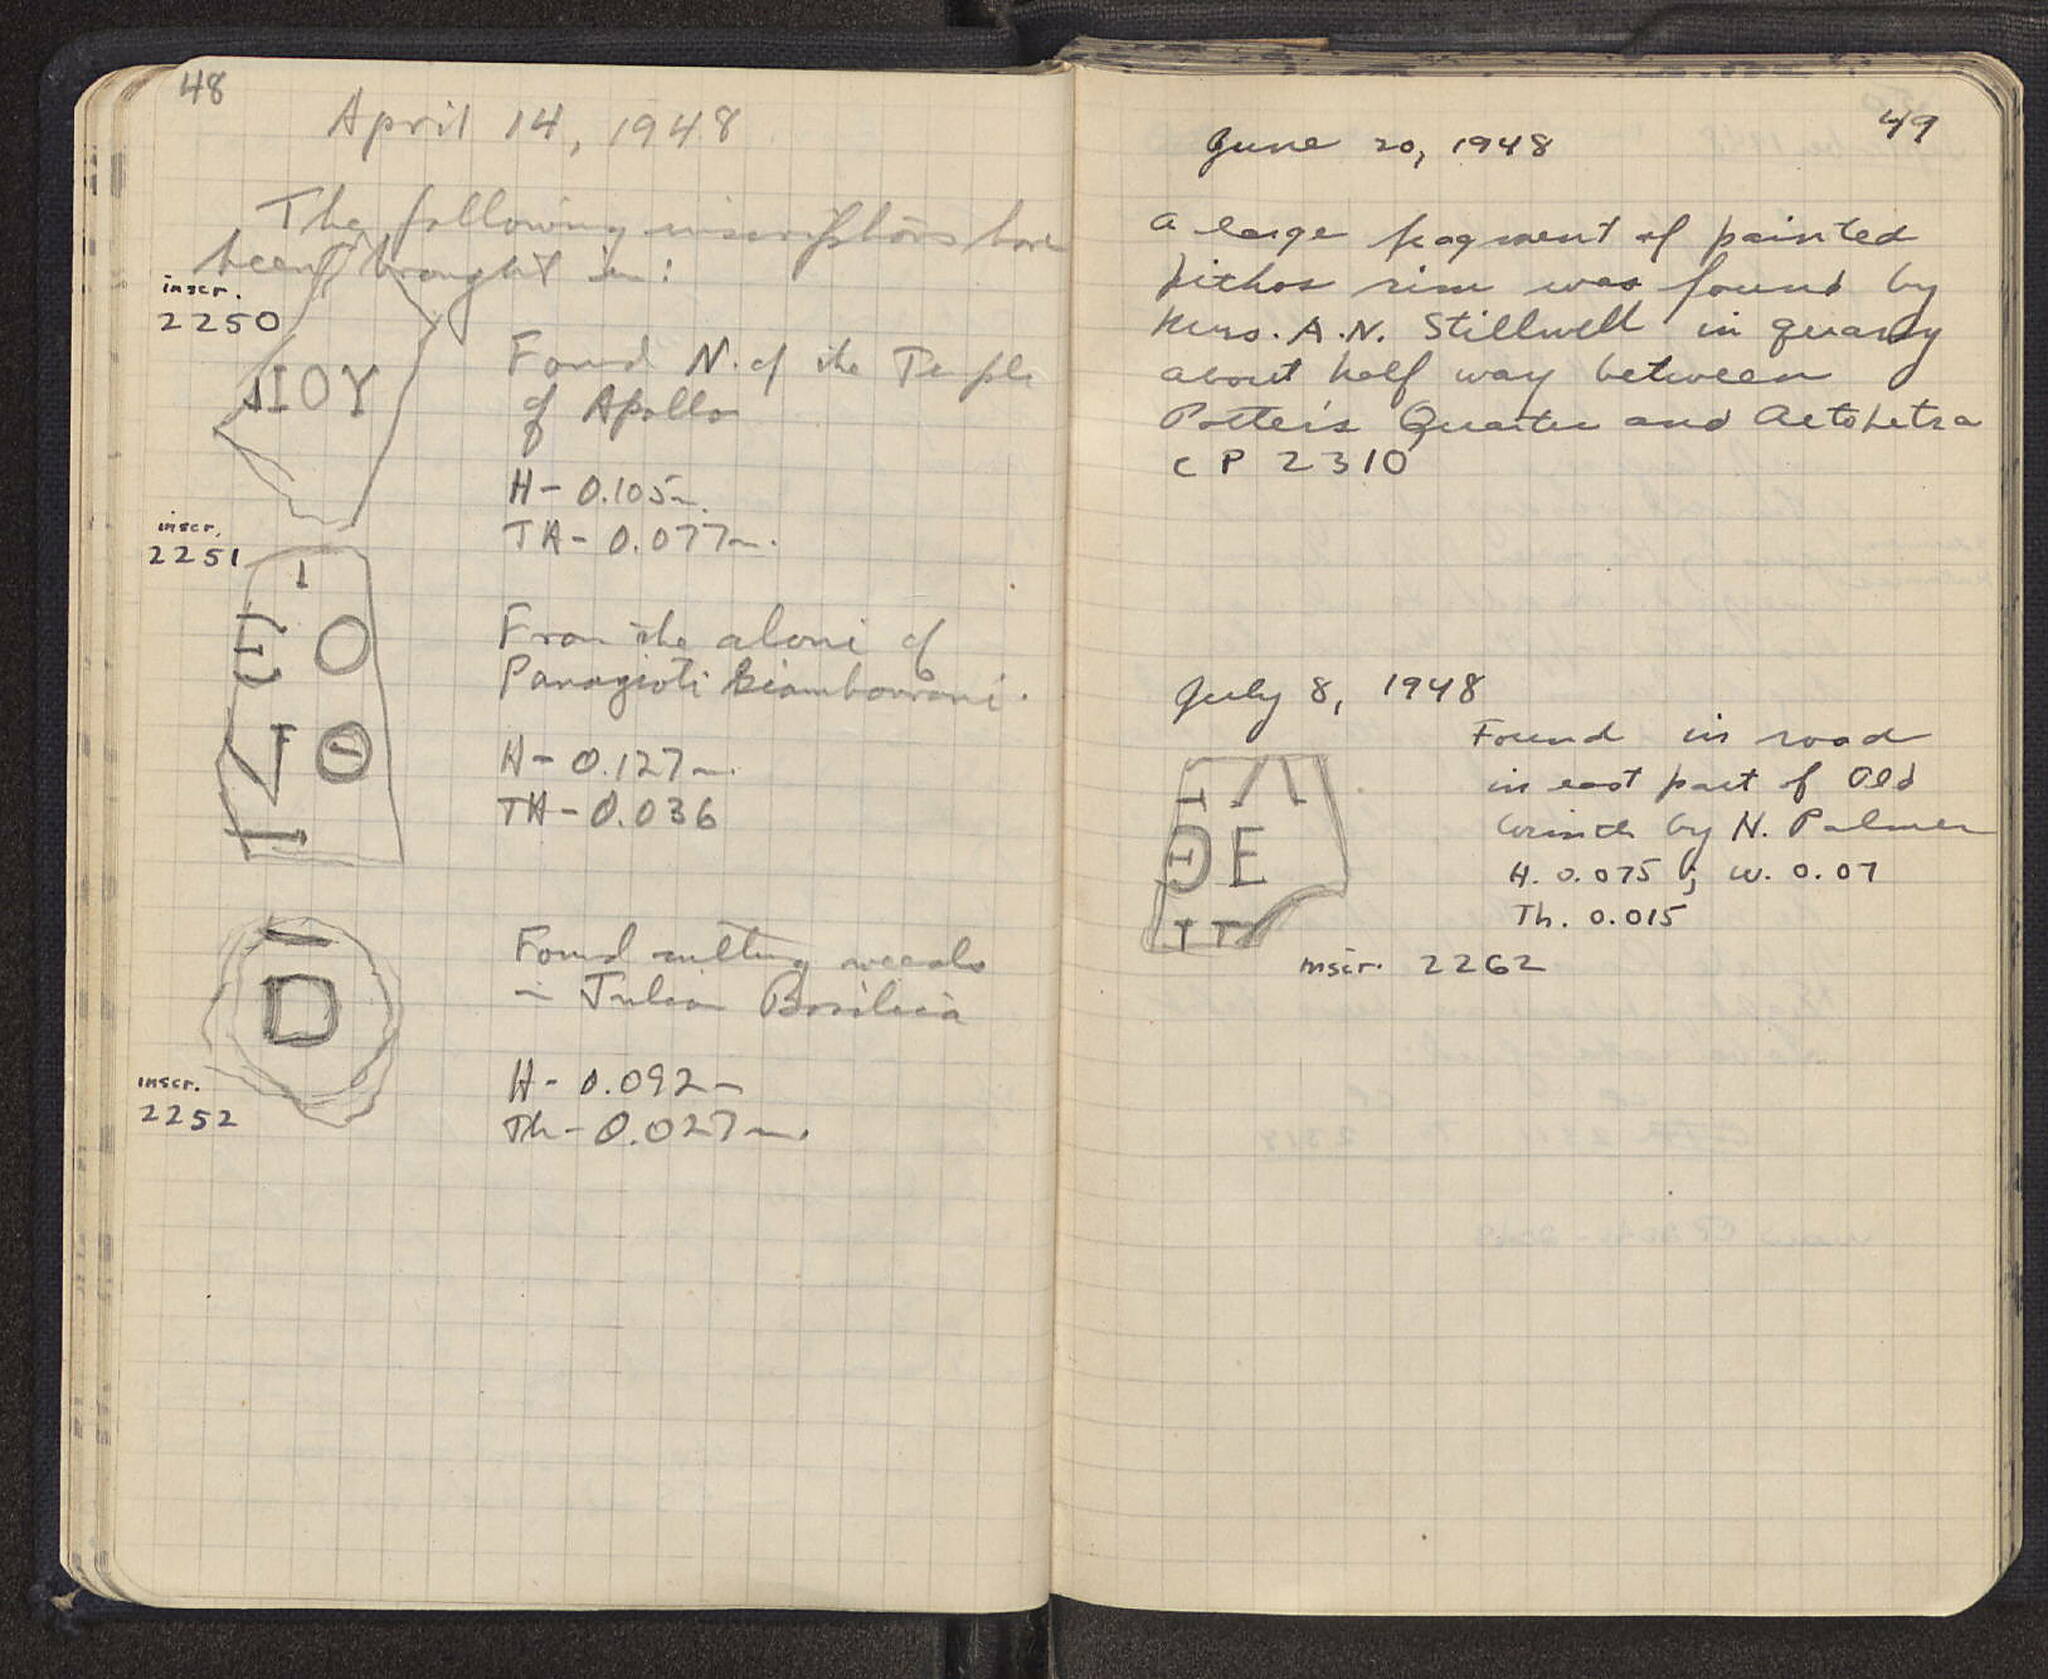 48
April 14, 1948
The following inscriptions have
been brought in:
inscr.
2250
ΙΟΥ
Found N. of the Temple
of Apollo
H - 0.105m.
TH - 0.077m.
inscr.
2251
Ι
Ε Ο
Θ
From the aloni of
Panagioti
H - 0.127m.
TH - 0.036
Found cutting weeds
in Julian Basilica
H - 0.092m
Th - 0.027m.
inscr.
2252
49
June 20, 1948
A large fragment of painted
pithos rim was found by
Mrs. A.N. Stillwell in quarry
about half way between
Potter's Quarter and Aetopetra
CP 2310
July 8, 1948
Found in road
in east part of Old
Corinth by N. Palmer
H. 0.075; W. 0.07
Th. 0.015
Ε
inscr. 2262